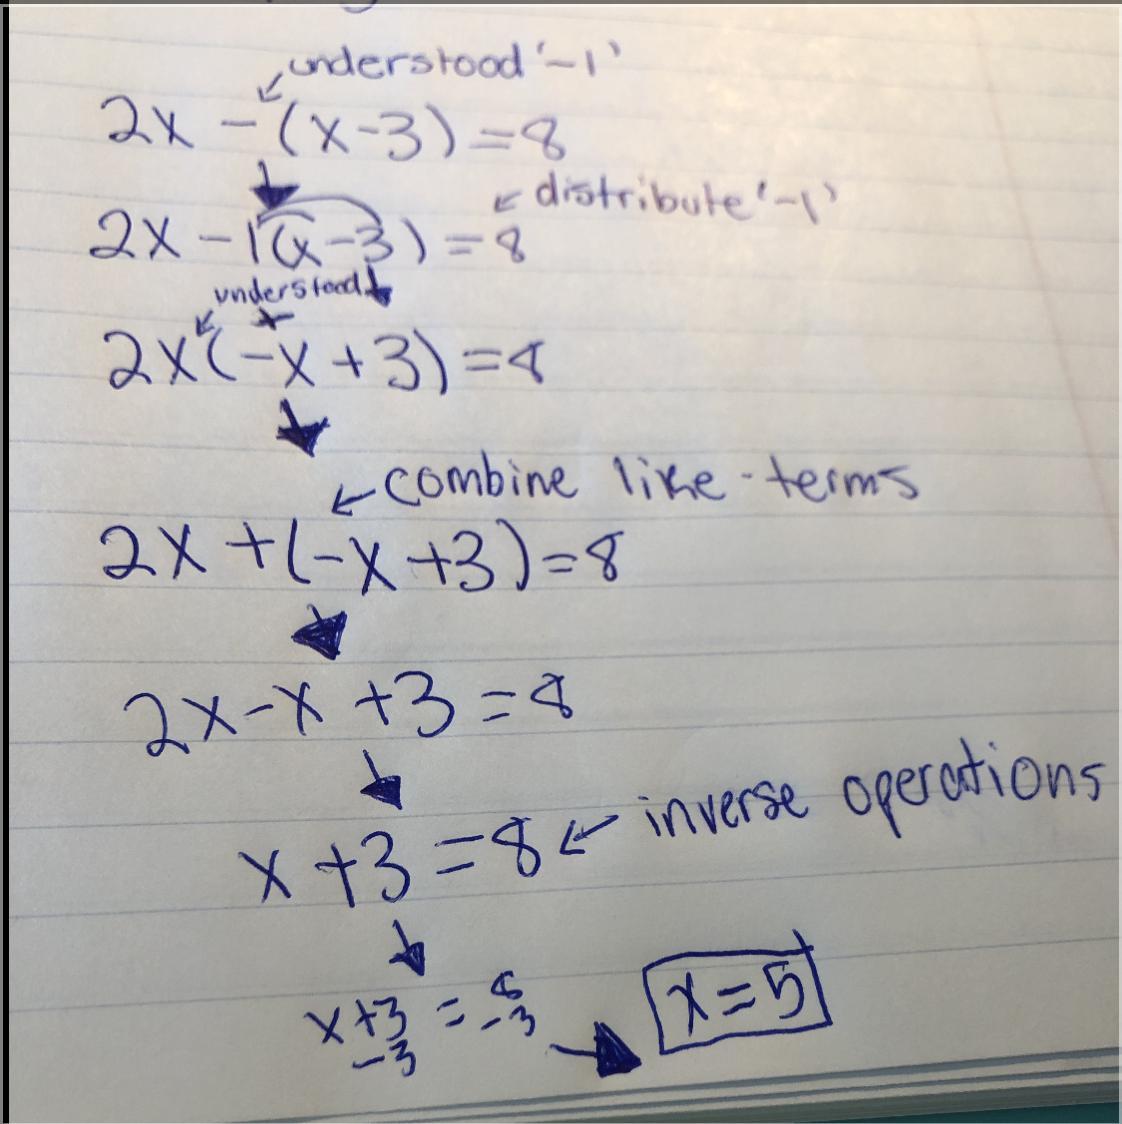 understood '-1'
2x - (x-3) = 8
distribute '-1'
2x - 1(x-3) = 8
understood +
2x (-x + 3) = 8
combine like-terms
2x + (-x + 3) = 8
2x - x + 3 = 8
x + 3 = 8
inverse operations
x + 3 = 8
-3 -3
x = 5